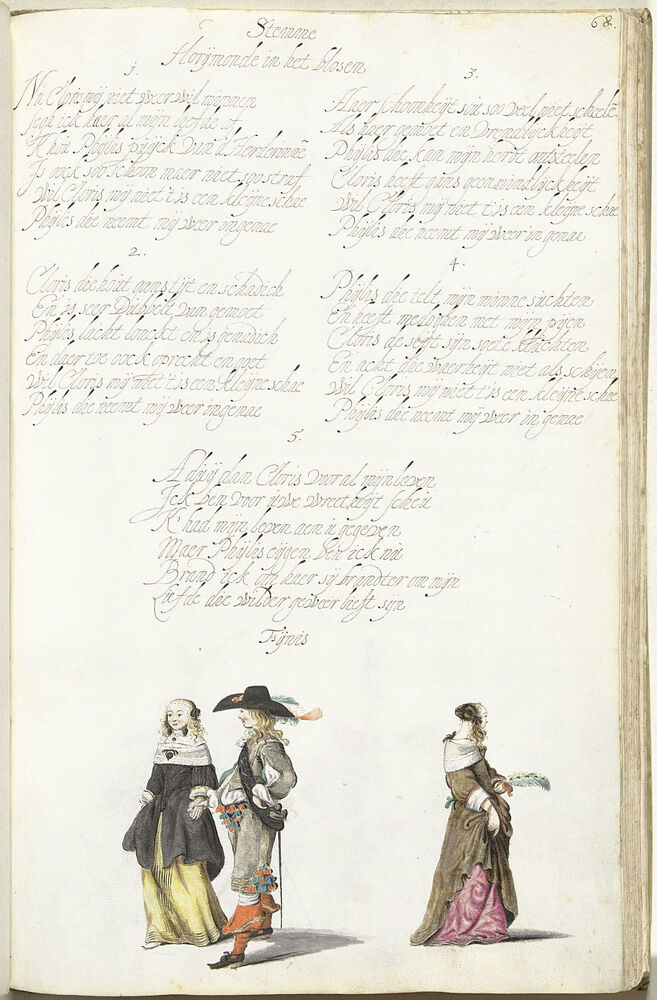 68.
Stemme
Florijmonde in het blosen
1.
Nu Cloris mij niet weer wil minnen
Segh ick haer al mijn liefde of
K hou Phylis
Is oock soo schoon maer niet soo straf
Wil Cloris mij niet t is een kleyne schae
Phylis die neemt mij weer in genae
2.
Cloris die hout gans tijt en schadich
En is seer Dubbelt van gemoet
Phylis lacht lonckt en is genadich
En daer toe oock oprecht en goet
Wil Cloris mij niet t is een kleyne schae
Phylis die neemt mij weer in genae
3.
Haer schoonheijt sou soo veel niet scheele
Als haer gemoet en Vrendelyckheijt
Phylis die kan mijn hert ontsteelen
Cloris heeft gans geen mindlyckheijt
Wil Cloris mij niet t is een kleyne schae
Phylis die neemt mij weer in genae
4.
Phylis die telt mijn minne suchten
En heeft medoghen met mijn pijen
Cloris de
En acht die waerheijt niet als schijen
Wil Cloris mij niet t is een kleyne schae
Phylis die neemt mij weer in genae
5.
Adijij dan Cloris voor al mijn leven
Ick ben voor uwe wreetheijt scheu
K' had mijn leven aen u gegeven
Maer Phylis eijgen ben ick nu
Brand ick om haer sij brandter om mijn
Liefde die wil der geweer lieft sijn
Fijnis